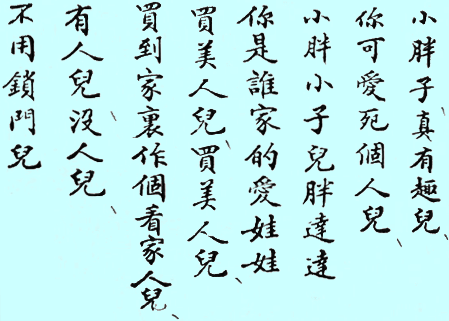 小胖子真有趣兒、
你可愛死個人兒、
小胖小子兒胖達達
你是誰家的愛娃娃
買美人兒、買美人兒、
買到家裏作個看家人兒、
有人兒、沒人兒、
不用鎖門兒